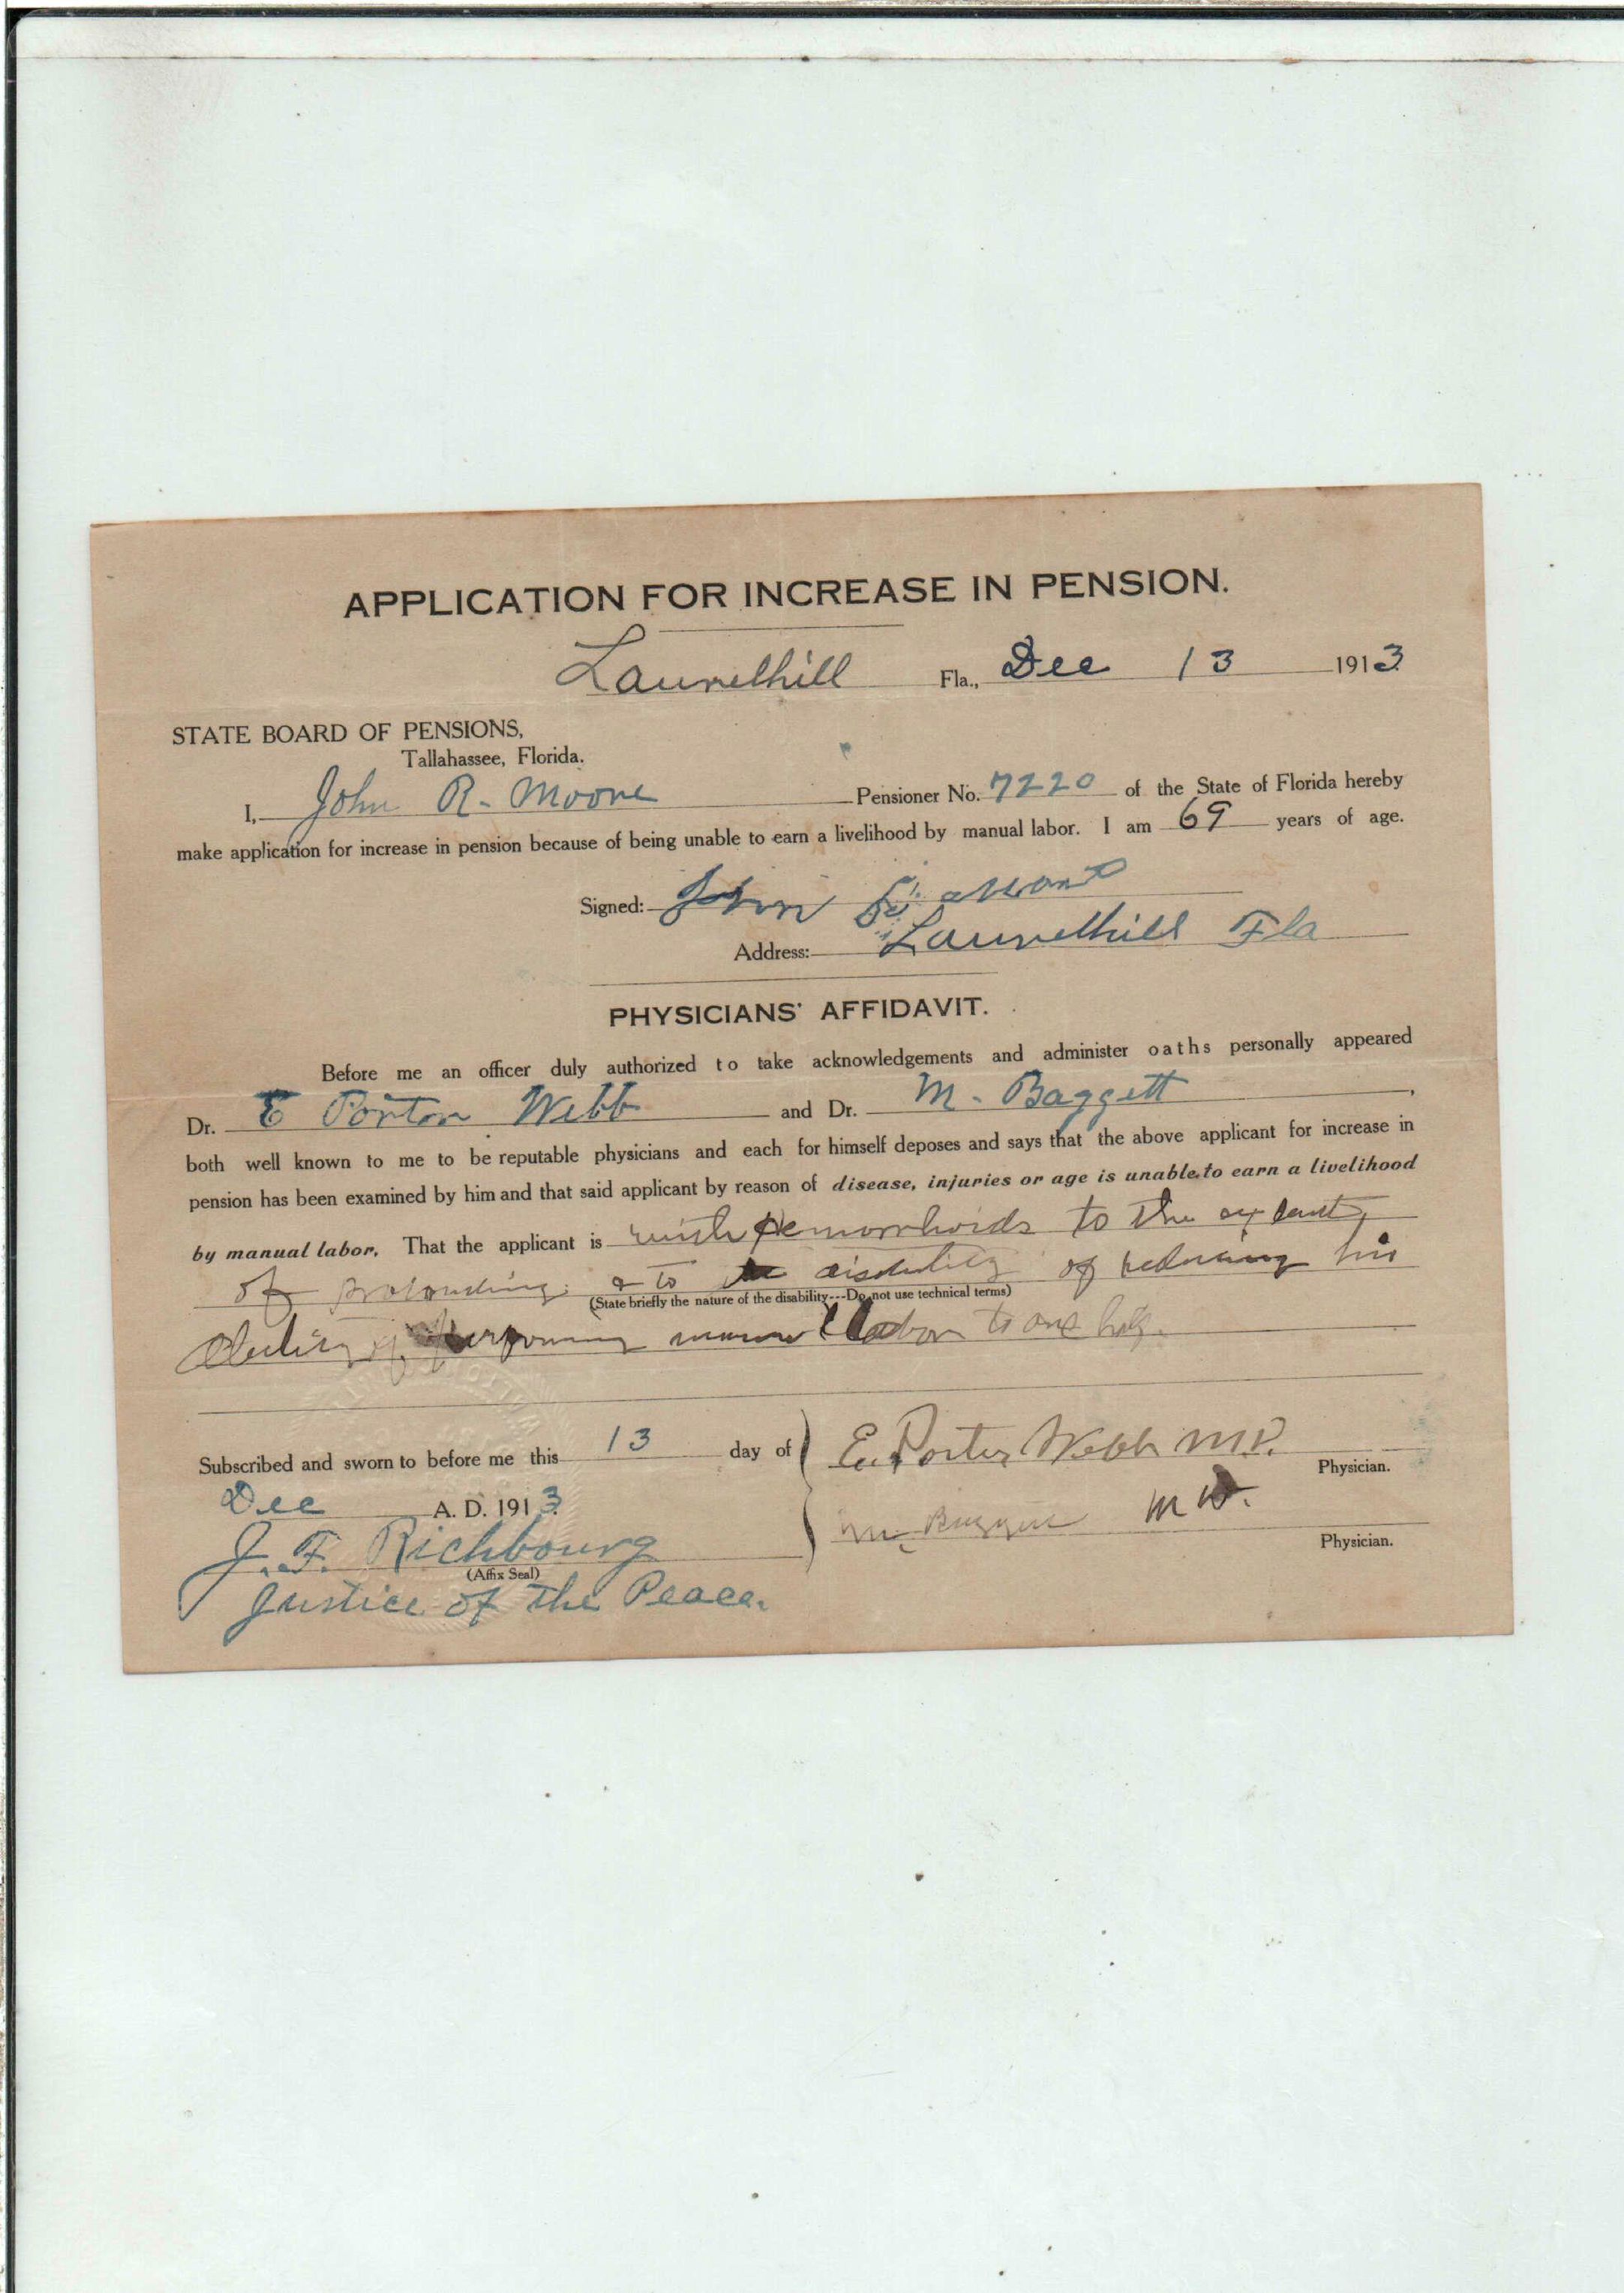 APPLICATION FOR INCREASE IN PENSION.
Laurelhill Fla., Dec 13 1913
STATE BOARD OF PENSIONS,
Tallahassee, Florida.
I, John R. Moore Pensioner No. 7220 of the State of Florida hereby
make application for increase in pension because of being unable to earn a livelihood by manual labor. I am 69 years of age.
Signed: John
Address: Laurelhill Fla
PHYSICIANS' AFFIDAVIT.
Before me an officer duly authorized to take acknowledgements and administer oaths personally appeared
Dr. E Porter Webb and Dr. M. Baggett,
both well known to me to be reputable physicians and each for himself deposes and says that the above applicant for increase in
pension has been examined by him and that said applicant by reason of disease, injuries or age is unable to earn a livelihood
by manual labor. That the applicant is with Hemorrhoids to the extent
of & to disability of reducing his
(State briefly the nature of the disability---Do not use technical terms)
ability of manual labor to one half.
Subscribed and sworn to before me this 13 day of E. Porter Webb M.D.
Physician.
Dec A. D. 1913. M. Baggett M D.
Physician.
J. F. Richbourg
(Affix Seal)
Justice of the Peace.